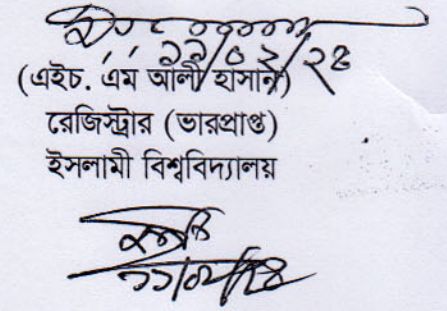 ১১/০২/২৪
(এইচ. এম আলী হাসান)
রেজিস্ট্রার (ভারপ্রাপ্ত)
ইসলামী বিশ্ববিদ্যালয়
১১/০২/২৪